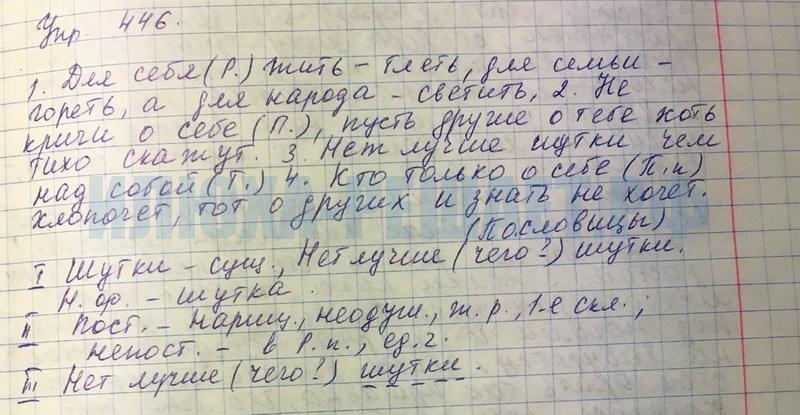 Упр 446.
1. Для себя (Р.) жить – тлеть, для семьи –
гореть, а для народа – светить, 2. Не
кричи о себе (П.), пусть другие о тебе хоть
тихо скажут. 3. Нет лучше шутки чем
над собой (Т.) 4. Кто только о себе (П.п)
хлопочет, тот о других и знать не хочет.
(Пословицы)
I Шутки – сущ., Нет лучше (чего?) шутки.
Н. ф. – шутка.
II Пост. – нариц., неодуш., ж. р., 1-е скл.;
непост. – в Р. п., ед. ч.
III Нет лучше (чего?) шутки.